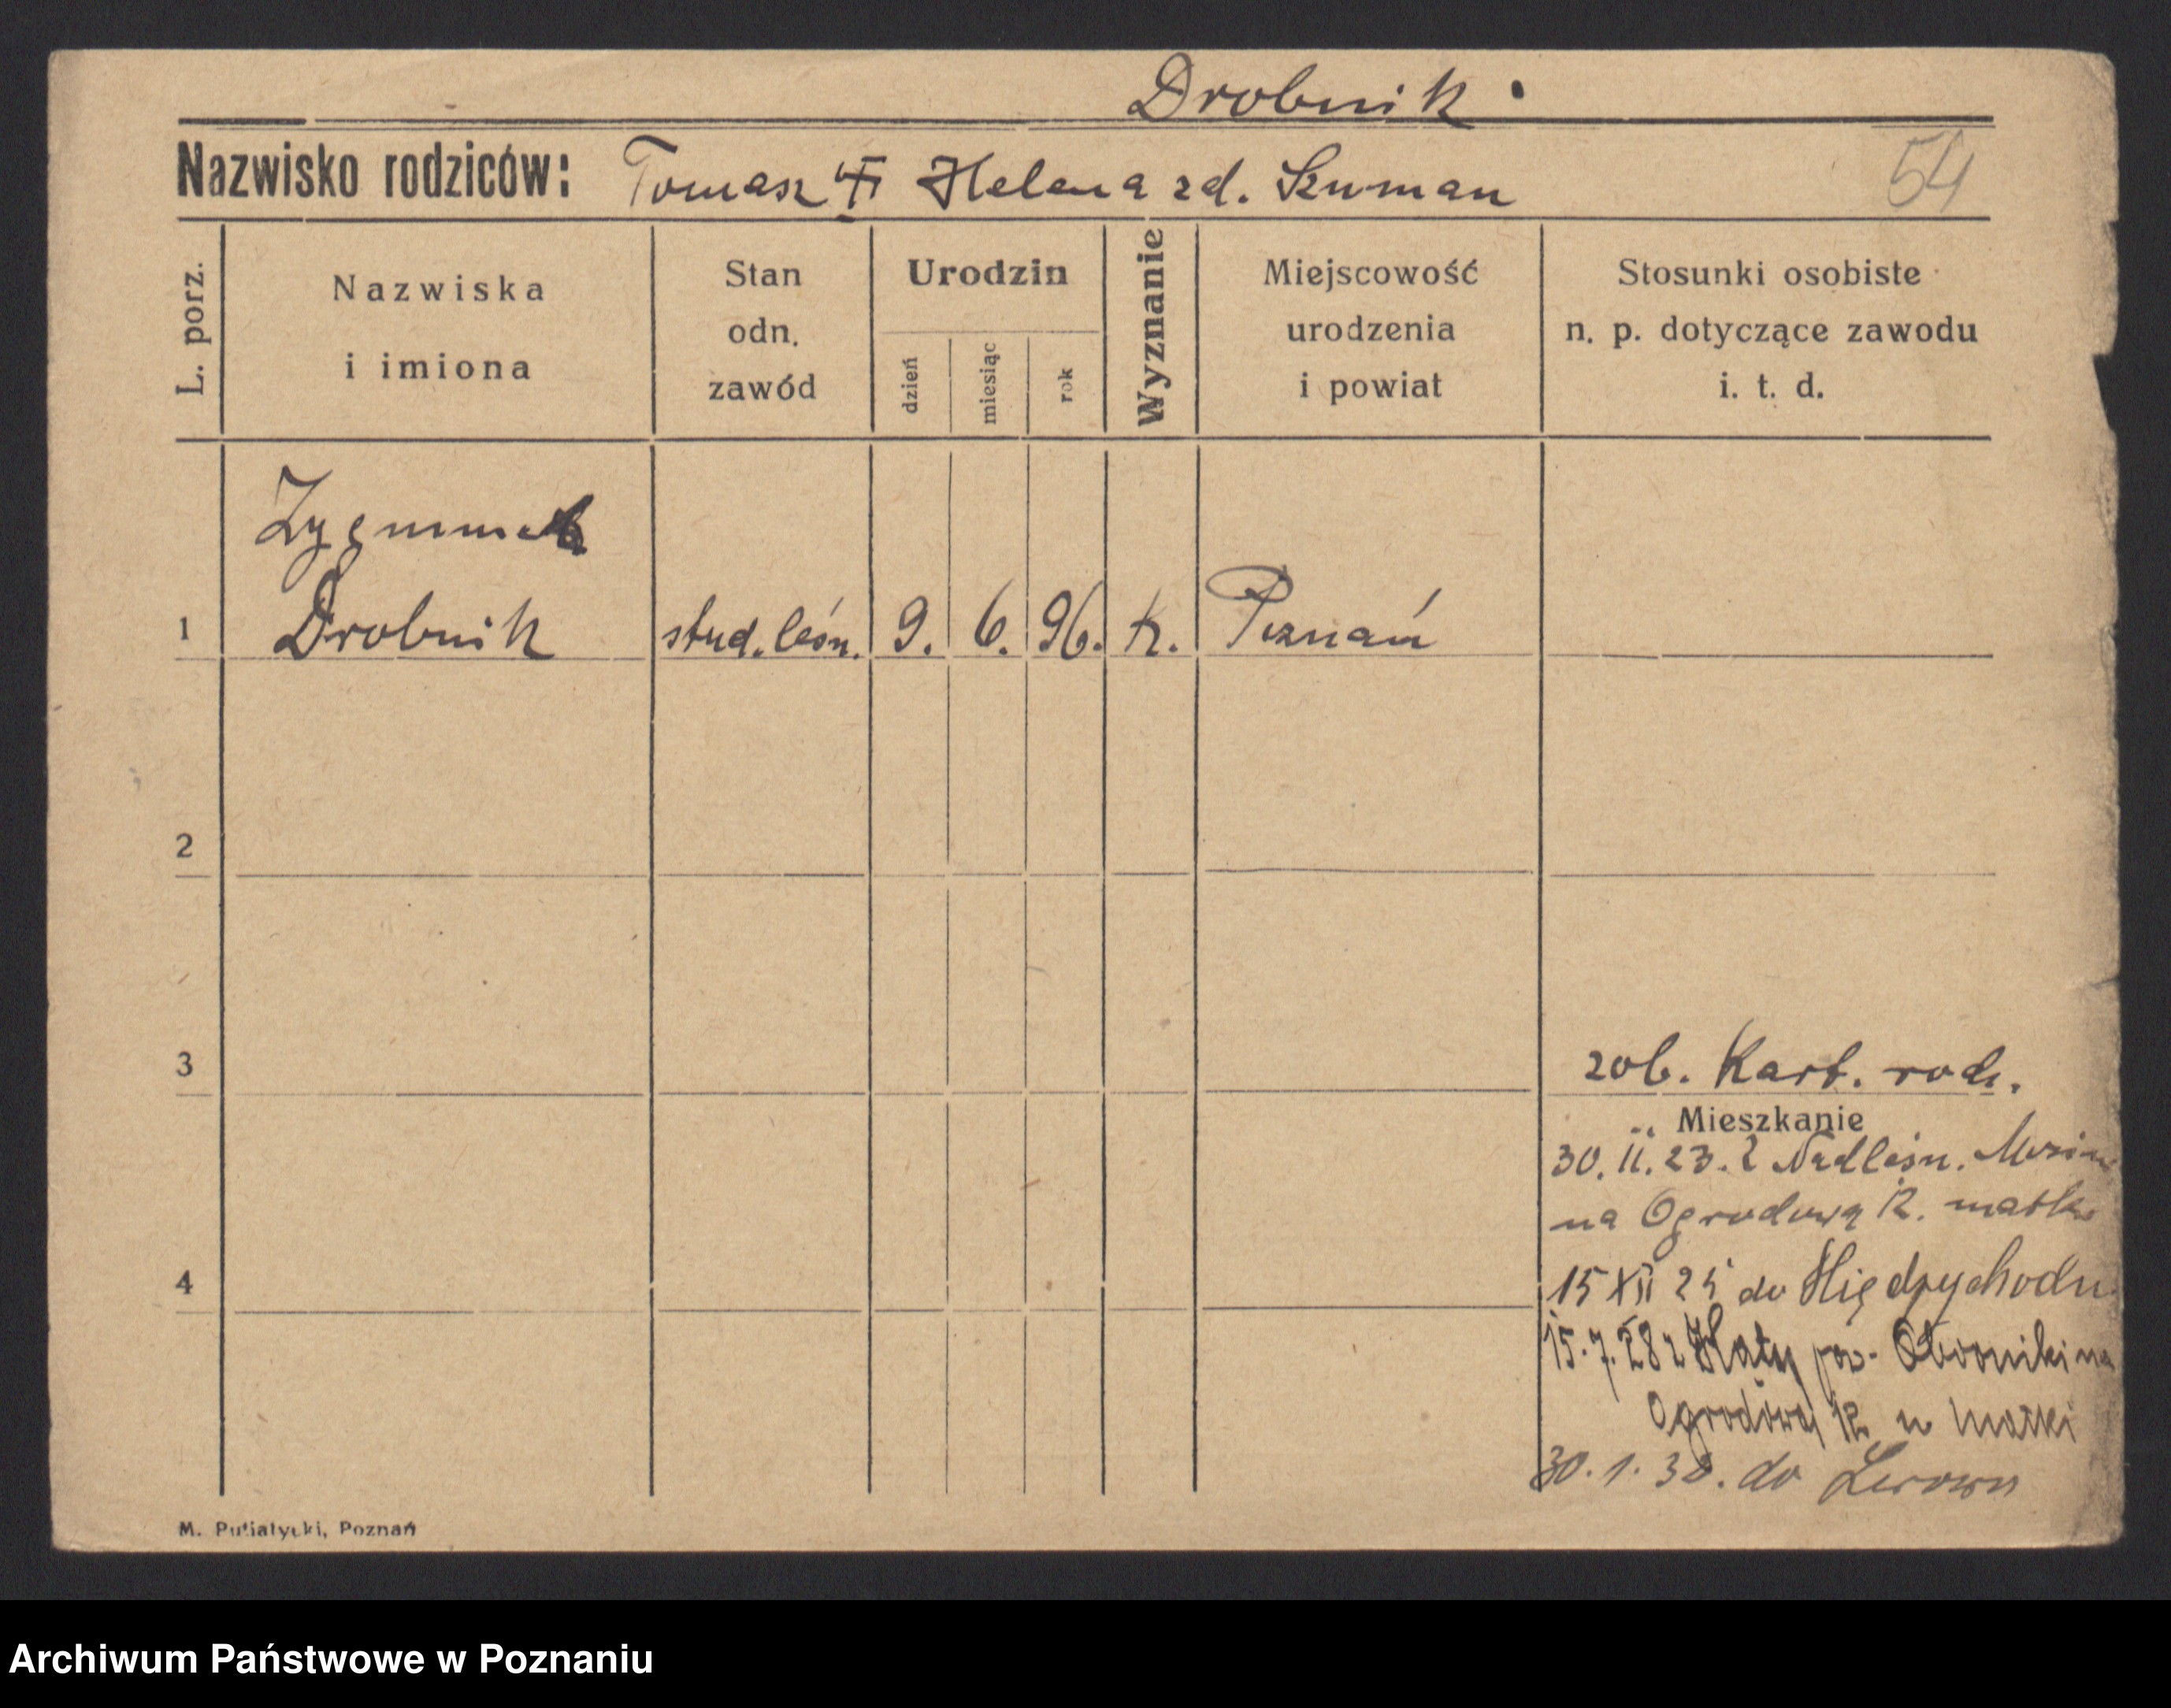 Drobnik
Nazwisko rodziców: Tomasz Helena zd. Szuman
54
L. porz.
Nazwiska
i imiona
Stan
odn.
zawód
Urodzin
dzień
miesiąc
rok
Wyznanie
Miejscowość
urodzenia
i powiat
Stosunki osobiste
n. p. dotyczące zawodu
i. t. d.
Zygmunt
1 Drobnik stud. leśn. 9. 6. 96. k. Poznań
2
3
zob. Kart. rodz.
Mieszkanie
30. 11. 23. z Nadleśn.
na Ogrodową 12. matka
4
15 XII 25 do Międzychodu
15. 7. 28 z pow. Oborniki na
Ogrodową 12 u matki
30. 1. 30. do Lwowa
M. Putiatycki, Poznań
Archiwum Państwowe w Poznaniu